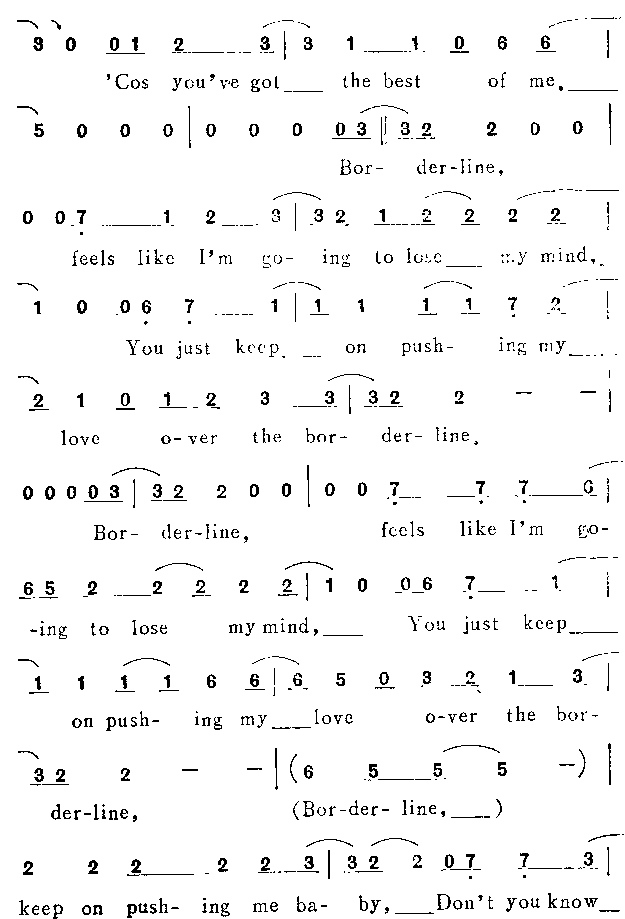 3 0 0 1 2 3 | 3 1 1 0 6 6 |
'Cos you've got___ the best of me,___
5 0 0 0 | 0 0 0 0 3 || 3 2 2 0 0 |
Bor- der-line,
0 0 7 1 2 3 | 3 2 1 2 2 2 2 |
feels like I'm go- ing to lose___ my mind,
1 0 0 6 7 1 | 1 1 1 1 7 2 |
You just keep__ on push- ing my___
2 1 0 1 2 3 3 | 3 2 2 — — |
love o-ver the bor- der- line,
0 0 0 0 3 | 3 2 2 0 0 | 0 0 7 7 7 6 |
Bor- der-line, feels like I'm go-
6 5 2 2 2 2 2 | 1 0 0 6 7 1 |
-ing to lose my mind,___ You just keep___
1 1 1 1 6 6 | 6 5 0 3 2 1 3 |
on push- ing my___love o-ver the bor-
3 2 2 — — | (6 5 5 5 —) |
der-line, (Bor-der- line,___)
2 2 2 2 2 3 | 3 2 2 0 7 7 3 |
keep on push- ing me ba- by,___Don't you know__